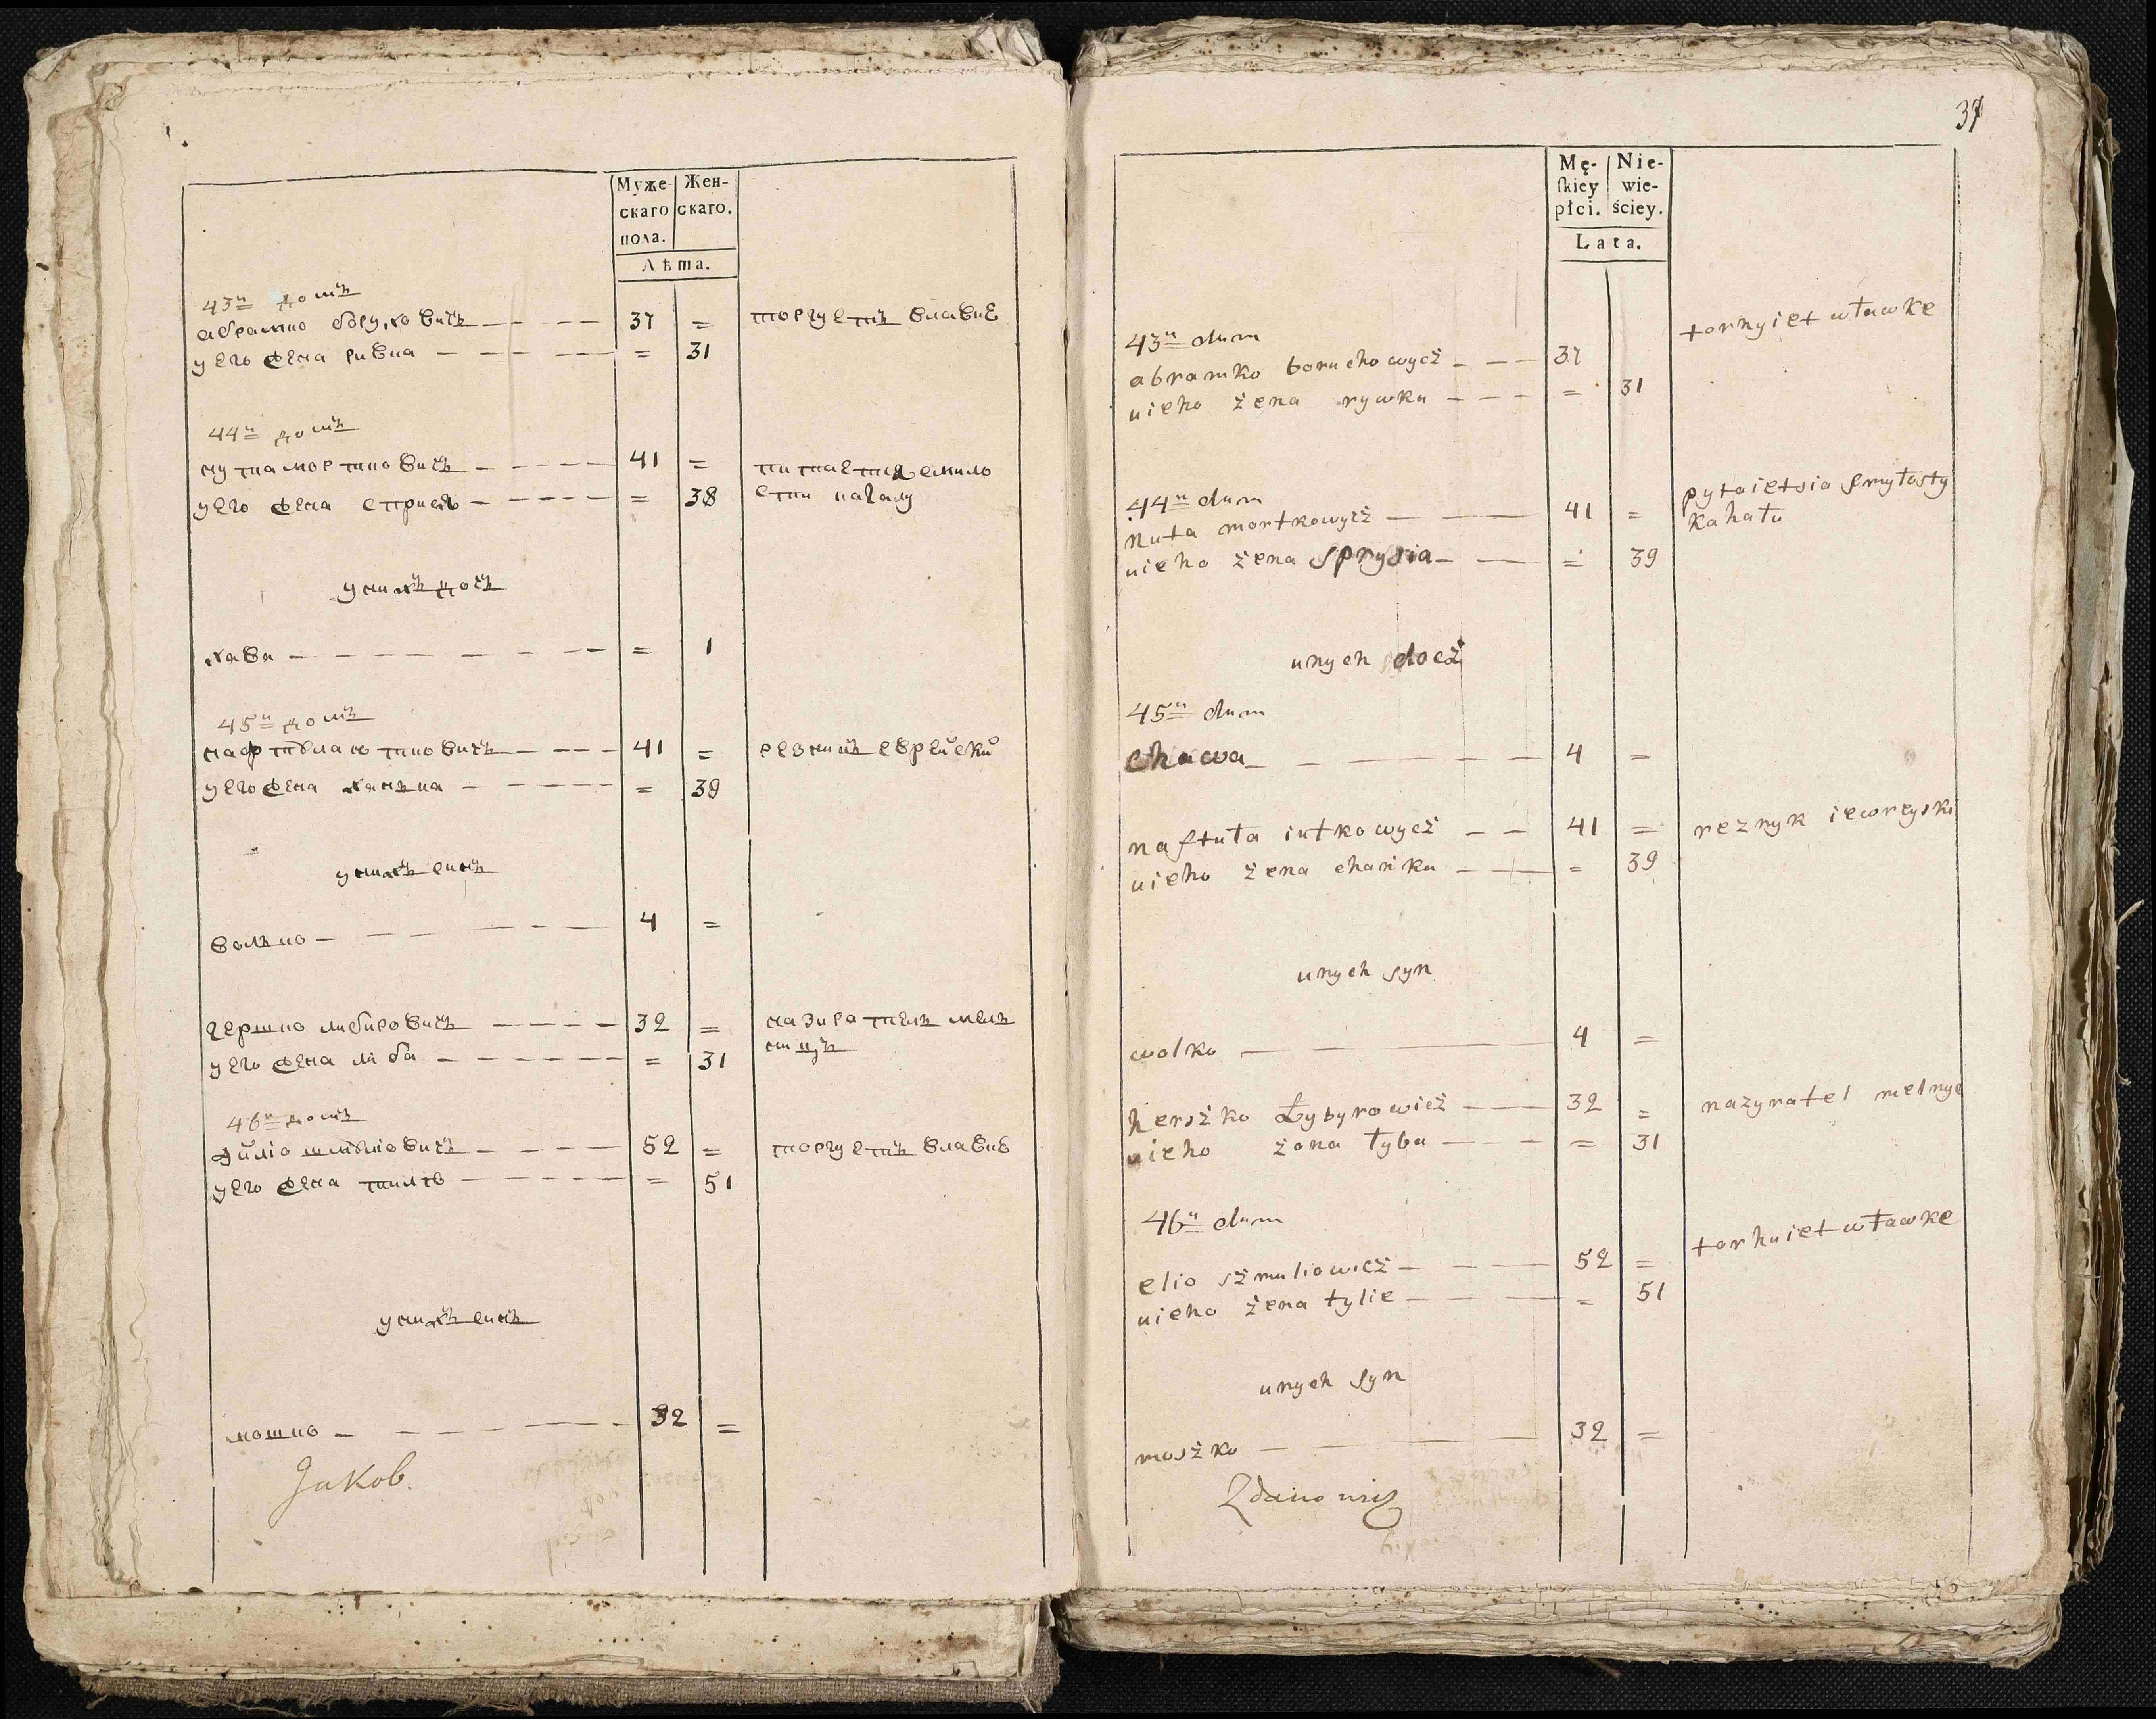 Муже-
скаго
пола.
Жен-
скаго.
Лѣта.
43й домъ
абрамко борухо вичъ 37 = торгуетъ влавкѣ
уего жена ривка = 31
44й домъ
нута мортковичъ 41 = питается смило
уего жена сприся = 38 сти кагалу
унихъ дочъ
хава = 1
45й домъ
нафтула ютковичъ 41 = резникъ еврейски
уего жена ханька = 39
унихъ синъ
волько 4 =
гершко либировичъ 32 = назиратель мель
уего жена либа = 31 ницъ
46й домъ
эйлio шмулiовичъ 52 = торгуетъ влавкѣ
уего жена тилѣ = 51
унихъ синъ
мошко 32 =
Jakob.
37
Mę-
ſkiey
płci.
Nie-
wie-
ściey.
Lata.
43й dum torhyiet wławke
abramko boruchowycż 37
uieho żena rywka = 31
44й dum pytaietsia smyłosty
nuta mortkowycż 41 = kahału
uieho żena sprysia = 39
unych docż
45й dum
chawa 4 =
naftuła iutkowycż 41 = reznyk iewreyski
uieho żena chańka = 39
unych syn
wolko 4 =
herszko Łybyrowicż 32 = nazyratel melnyc
uieho żona łyba = 31
46й dum torhuiet wławke
elio szmuliowicż 52 =
uieho żena tylie = 51
unych syn
moszko 32 =
Zdanowicz